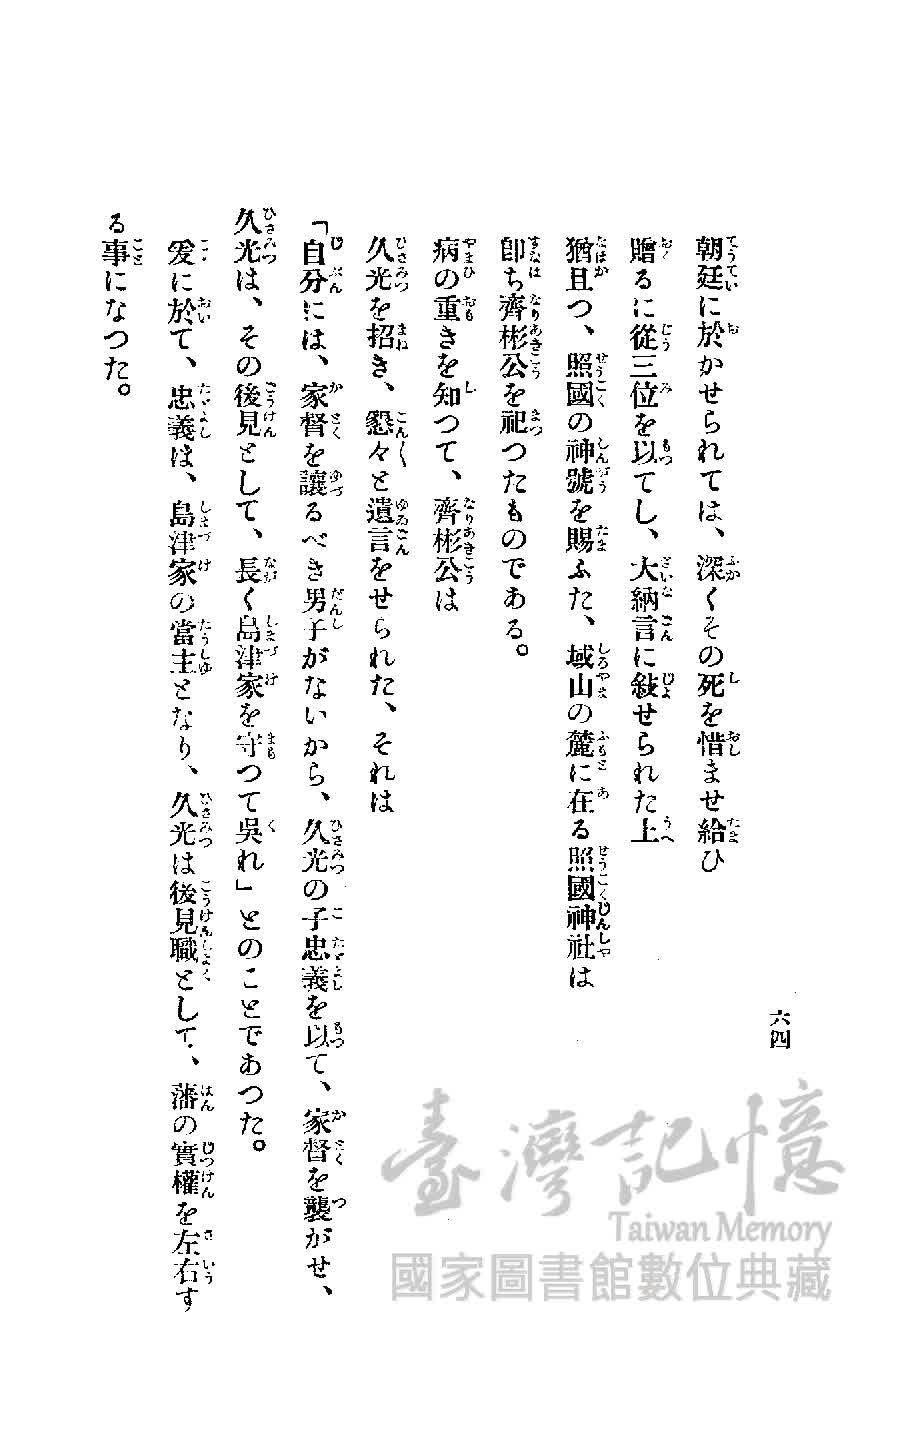 朝廷に於かせられては、深くその死を惜ませ給ひ
贈るに從三位を以てし、大納言に敍せられた上
猶且つ、照國の神號を賜ふた、城山の麓に在る照國神社は
卽ち齊彬公を祀つたものである。
病の重きを知つて、齊彬公は
久光を招き、懇々と遺言をせられた、それは
「自分には、家督を讓るべき男子がないから、久光の子忠義を以て、家督を襲がせ、
久光は、その後見として、長く島津家を守つて吳れ」とのことであつた。
爰に於て、忠義は、島津家の當主となり、久光は後見職として、藩の實權を左右す
る事になつた。
六四
臺灣記憶
Taiwan Memory
國家圖書館數位典藏